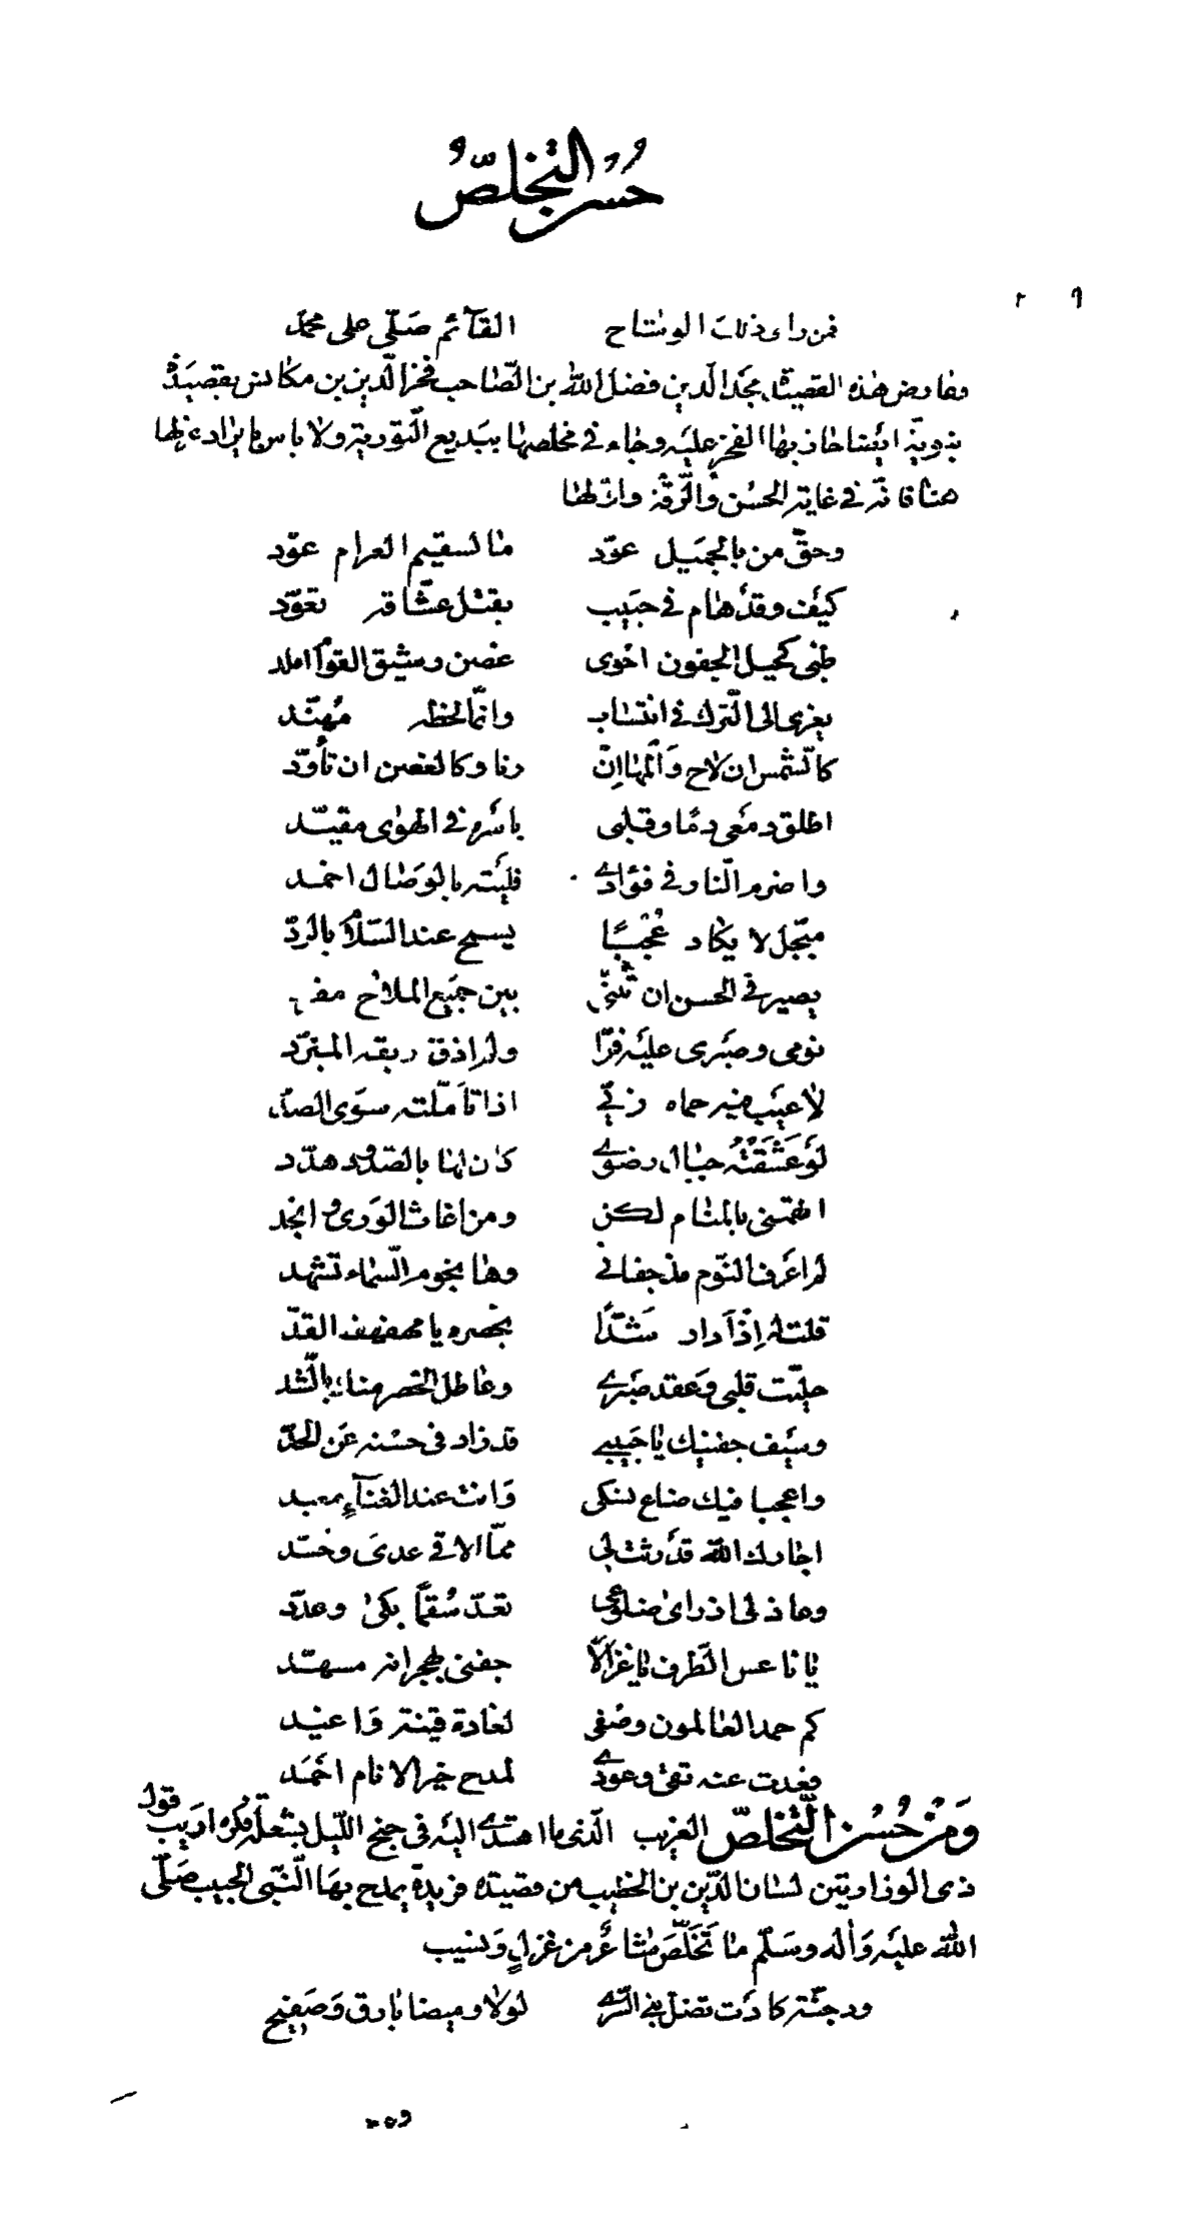 حُسْنُ التَّخَلُّصِ
فمن راى ذلك الوشاح القآئم صَلّى على محمّد
وعارض هذه القصيدة مجد الدين فضل الله بن الصّاحب فخر الدّين بن مكانس بقصيدة
نبويّة ايضا حاذ بها الفخر عليه وجاء فى مخلصها ببديع التّورية ولا باس بايراد غزلها
هنا فانّه فى غاية الحسْن والرّقّة واوّلها
وحقّ من بالجميل عوّد ما لسقيم الغرام عوّد
كيف وقد هام فى حبيب بقتل عشّاقه تعوّد
ظبى كحيل الجفون احوى غصن رشيق القوام املد
يعزى الى التّرك فى انتساب وانّما لحظه مُهنّد
كالشّمس ان لاح وَالمها اِن رنا وكالغصن ان تأوّد
اطلق دمعى دمًا وقلبى باسره فى الهوى مقيّد
واضرم النار فى فؤادى فليته بالوصال اخمد
مبجّل لا يكاد عُجْبًا يسمح عند السّلام بالردّ
يصير فى الحسن ان تثنّى بين جميع الملاح مفرد
نومى وصبرى عليه فرّا ولم اذق ريقه المبرّد
لا عيب فيه حماه ربّى اذا تامّلته سوَى الصدّ
لَوْ عَشَقَتْهُ جبال رضوى كان لها بالصّدود هدّد
اتهمتنى بالمنام لكن ومن اغاث الورى وانجد
لم اعرف النّوم مذ جفانى وها نجوم السّماء تشهد
قلت له اِذْ اَدار شَدًّا بخصره يا مهفهف القدّ
حلّيت قلبى وَعقد صَبرى وعاطل الخصر منك بالشّد
وسيف جفنيك يا حَبيبى قد زاد فى حسنه عَن الحدّ
واعجبا فيك ضاع نسكى وَانت عند الغنآءِ معبد
اجارك الله قد رثت لى ممّا الاقى عدىَ وحسّد
وعاذلى اذ راى ضلوعى تعدّ سُقمًا بكى وعدّد
يا ناعس الطّرف يا غزالًا جفنى بهجرانه مسهّد
كم حمد العالمون وصْفى لغادة قينة وَاغيد
فعدت عنه تقى وعودى لمدح خير الانام احمَد
وَمِنْ حُسْنِ التَّخَلُّصِ الغريب الّذى ما اهتدى اليه فى جنح اللّيل بشعلة فكره اديب قول
ذى الوزارتين لسان الدّين بن الخطيب من قصيدة فريدة يمدح بهَا النّبىّ الحبيب صَلّى
الله عليه وَاٰله وسَلّم ما تَخَلَّصَ شاعرٌ من غزلٍ وَنسيب
ودجنّة كادَت تضل بنى السّرى لولا وميضا بارق وَصَفيح